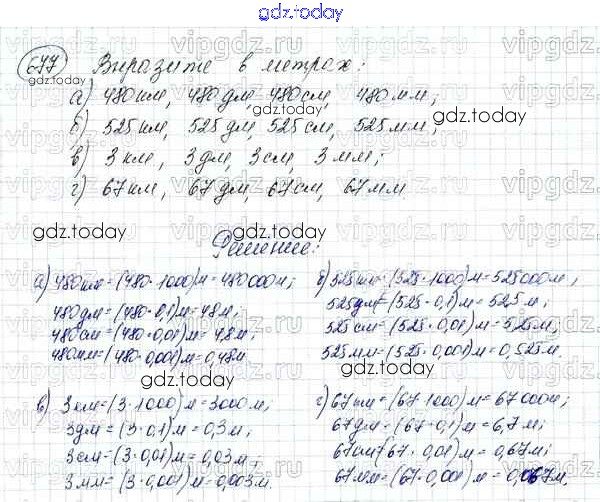 gdz.today
677 Выразите в метрах:
а) 480 км, 480 дм, 480 см, 480 мм;
б) 525 км, 525 дм, 525 см, 525 мм;
в) 3 км, 3 дм, 3 см, 3 мм;
г) 67 км, 67 дм, 67 см, 67 мм.
Решение:
а) 480 км = (480 · 1000) м = 480 000 м;
480 дм = (480 · 0,1) м = 48 м;
480 см = (480 · 0,01) м = 4,8 м;
480 мм = (480 · 0,001) м = 0,48 м.
б) 525 км = (525 · 1000) м = 525 000 м;
525 дм = (525 · 0,1) м = 52,5 м;
525 см = (525 · 0,01) м = 5,25 м;
525 мм = (525 · 0,001) м = 0,525 м.
в) 3 км = (3 · 1000) м = 3000 м;
3 дм = (3 · 0,1) м = 0,3 м;
3 см = (3 · 0,01) м = 0,03 м;
3 мм = (3 · 0,001) м = 0,003 м.
г) 67 км = (67 · 1000) м = 67 000 м;
67 дм = (67 · 0,1) м = 6,7 м;
67 см = (67 · 0,01) м = 0,67 м;
67 мм = (67 · 0,001) м = 0,067 м.
gdz.today